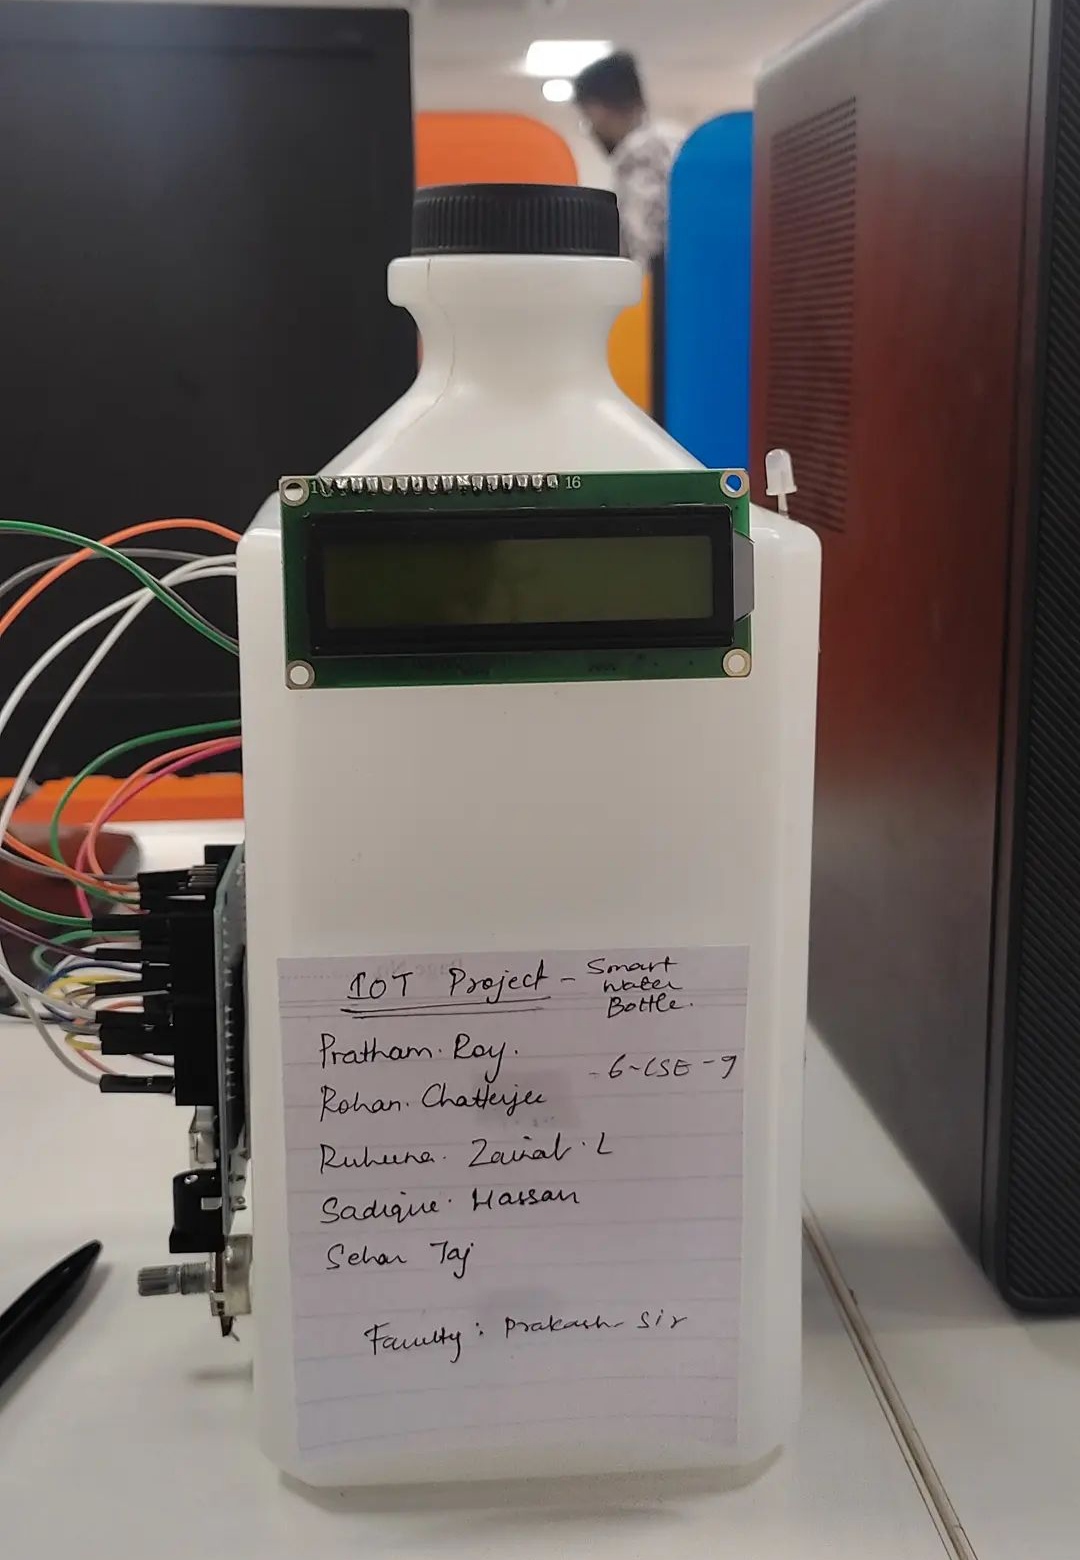 1 16
IOT Project - Smart Water Bottle.
Pratham. Roy.
- 6-CSE-9
Rohan. Chatterjee
Ruheena. Zainab. L
Sadique. Hassan
Sehar Taj
Faculty: Prakash Sir